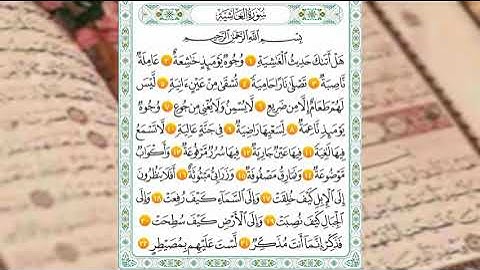 سُورَةُ الغَاشِيَة
بِسْمِ اللَّهِ الرَّحْمَٰنِ الرَّحِيمِ
هَلْ أَتَىٰكَ حَدِيثُ ٱلْغَٰشِيَةِ ١ وُجُوهٌ يَوْمَئِذٍ خَٰشِعَةٌ ٢ عَامِلَةٌ
نَّاصِبَةٌ ٣ تَصْلَىٰ نَارًا حَامِيَةً ٤ تُسْقَىٰ مِنْ عَيْنٍ ءَانِيَةٍ ٥ لَّيْسَ
لَهُمْ طَعَامٌ إِلَّا مِن ضَرِيعٍ ٦ لَّا يُسْمِنُ وَلَا يُغْنِى مِن جُوعٍ ٧ وُجُوهٌ
يَوْمَئِذٍ نَّاعِمَةٌ ٨ لِّسَعْيِهَا رَاضِيَةٌ ٩ فِى جَنَّةٍ عَالِيَةٍ ١٠ لَّا تَسْمَعُ
فِيهَا لَٰغِيَةً ١١ فِيهَا عَيْنٌ جَارِيَةٌ ١٢ فِيهَا سُرُرٌ مَّرْفُوعَةٌ ١٣ وَأَكْوَابٌ
مَّوْضُوعَةٌ ١٤ وَنَمَارِقُ مَصْفُوفَةٌ ١٥ وَزَرَابِىُّ مَبْثُوثَةٌ ١٦ أَفَلَا يَنظُرُونَ
إِلَى ٱلْإِبِلِ كَيْفَ خُلِقَتْ ١٧ وَإِلَى ٱلسَّمَآءِ كَيْفَ رُفِعَتْ ١٨ وَإِلَى
ٱلْجِبَالِ كَيْفَ نُصِبَتْ ١٩ وَإِلَى ٱلْأَرْضِ كَيْفَ سُطِحَتْ ٢٠
فَذَكِّرْ إِنَّمَآ أَنتَ مُذَكِّرٌ ٢١ لَّسْتَ عَلَيْهِم بِمُصَيْطِرٍ ٢٢